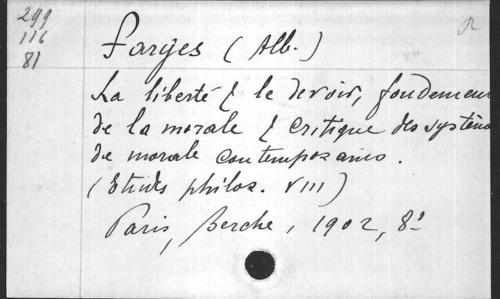 299
116
81
Farges (Alb.)
La liberté & le devoir, fondemen
de la morale & critique des systèm
de morale contemporains.
(Etudes philos. VIII)
Paris, Berche, 1902, 8º